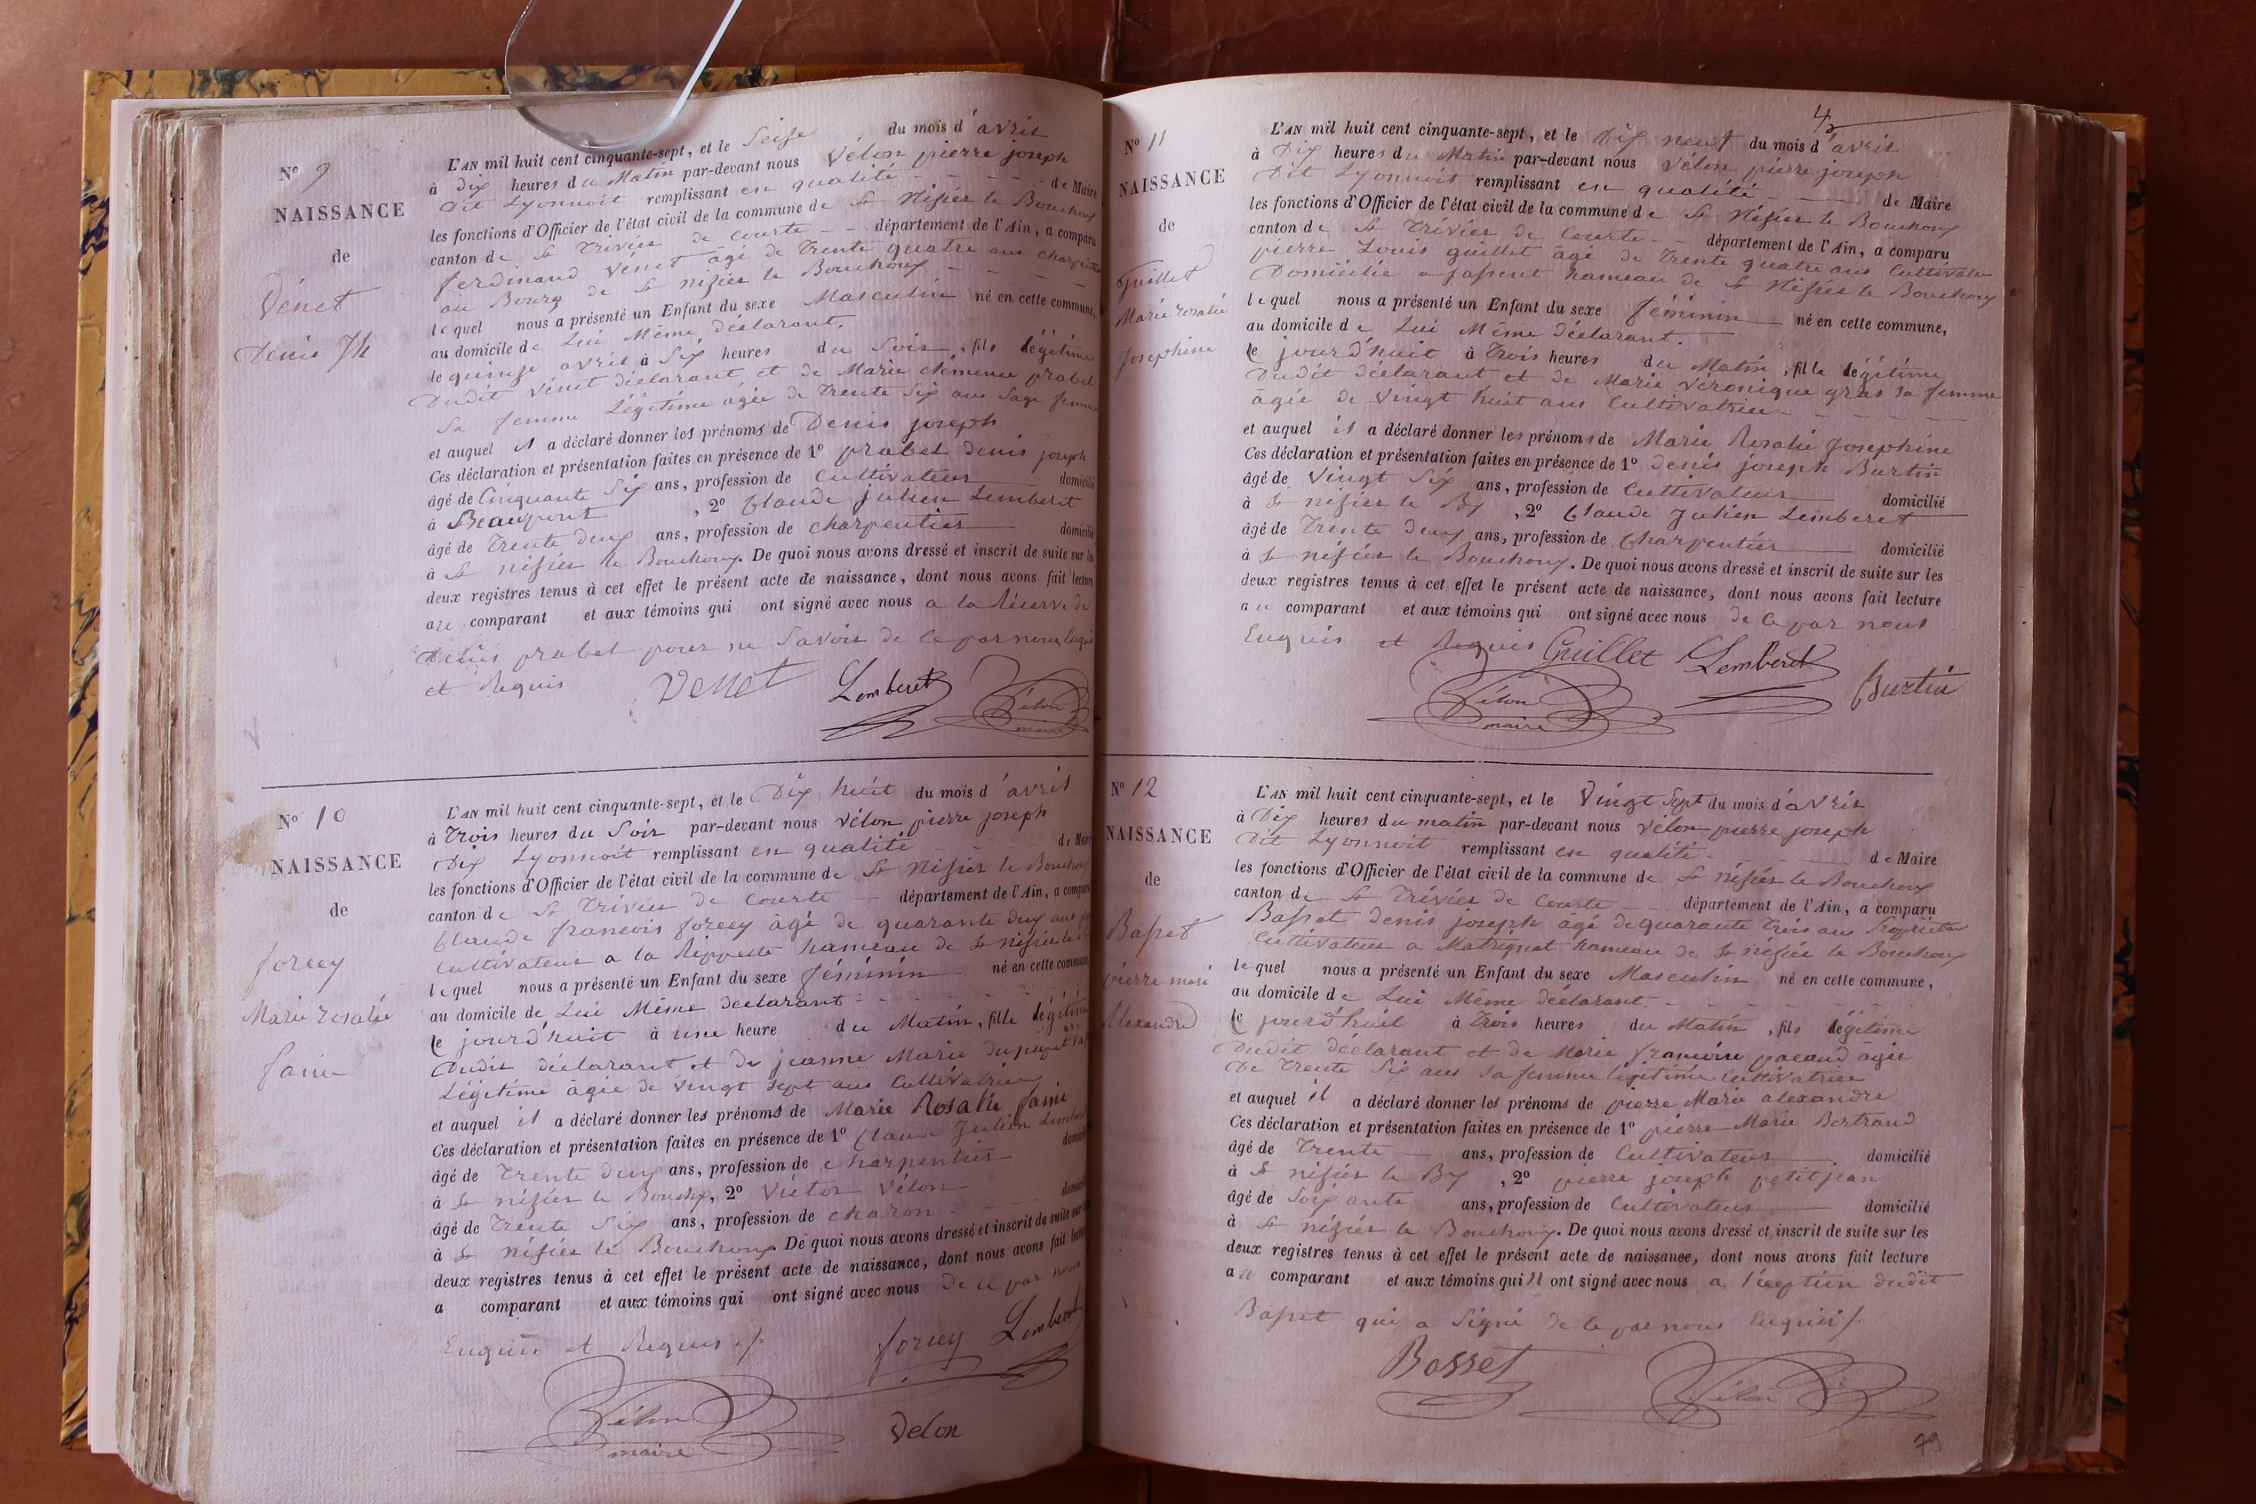 Nº 9
NAISSANCE
de
Vénet
Denis Jh
L'AN mil huit cent cinquante-sept, et le Seize du mois d'avril
à Dix heures du Matin par-devant nous Vélon pierre joseph
dit Lyonnoit remplissant en qualité de Maire
les fonctions d'Officier de l'état civil de la commune de St Nizier le Bouchoux
canton de St Trivier de Courte département de l'Ain, a comparu
ferdinand Vénet âgé de Trente quatre ans charpentier
au Bourg de St nizier le Bouchoux
lequel nous a présenté un Enfant du sexe Masculin né en cette commune,
au domicile de Lui Même déclarant,
le quinze avril à Six heures du Soir, fils légitime
Dudit Vénet déclarant et de Marie clémence prabel
Sa femme Légitime âgée de Trente Six ans Sage femme
et auquel il a déclaré donner les prénoms de Denis joseph
Ces déclaration et présentation faites en présence de 1º prabel denis joseph
âgé de Cinquante Six ans, profession de Cultivateur domicilié
à Beaupont, 2º Claude julien Lemberet
âgé de Trente deux ans, profession de charpentier domicilié
à St nizier le Bouchoux. De quoi nous avons dressé et inscrit de suite sur les
deux registres tenus à cet effet le présent acte de naissance, dont nous avons fait lecture
au comparant et aux témoins qui ont signé avec nous a la Réserve de
Denis prabel pour ne Savoir de ce par nous Enquis
et Requis Venet Lemberet Vélon maire
Nº 10
NAISSANCE
de
forey
Marie rosalie
fanie
L'AN mil huit cent cinquante-sept, et le Dix huit du mois d'avril
à Trois heures du Soir par-devant nous Vélon pierre joseph
Dix Lyonnoit remplissant en qualité de Maire
les fonctions d'Officier de l'état civil de la commune de St Nizier le Bouchoux
canton de St Trivier de Courte département de l'Ain, a comparu
Claude francois forey âgé de quarante deux ans
Cultivateur a la Rippette hameau de St nizier le
lequel nous a présenté un Enfant du sexe féminin né en cette commune
au domicile de Lui Même declarant
le jourd'huit à une heure du Matin, fille légitime
Dudit déclarant et de jeanne Marie
Légitime âgée de vingt sept ans Cultivatrice
et auquel il a déclaré donner les prénoms de Marie Rosalie fanie
Ces déclaration et présentation faites en présence de 1º Claude Julien Lemberet
âgé de Trente deux ans, profession de charpentier domicilié
à St nizier le Bouchx, 2º Victor Vélon
âgé de Trente Six ans, profession de charon domicilié
à St nizier le Bouchoux. De quoi nous avons dressé et inscrit de suite sur les
deux registres tenus à cet effet le présent acte de naissance, dont nous avons fait lecture
a comparant et aux témoins qui ont signé avec nous de ce par nous
Enquis et Requis ./. forey Lemberet
Vélon maire Velon
4
Nº 11
NAISSANCE
de
Guillet
Marie rosalie
Josephine
L'AN mil huit cent cinquante-sept, et le Dix neuf du mois d'avril
à Dix heures du Matin par-devant nous Vélon pierre joseph
Dit Lyonnoit remplissant en qualité de Maire
les fonctions d'Officier de l'état civil de la commune de St Nizier le Bouchoux
canton de St Trivier de Courte département de l'Ain, a comparu
pierre Louis guillet âgé de Trente quatre ans Cultivateur
Domicilié a hameau de St Nizier le Bouchoux
lequel nous a présenté un Enfant du sexe féminin né en cette commune,
au domicile de Lui Même déclarant.
le jourd'huit à Trois heures du Matin, fille légitime
Dudit déclarant et de Marie Véronique gras sa femme
âgée de Vingt huit ans Cultivatrice
et auquel il a déclaré donner les prénoms de Marie Rosalie Josephine
Ces déclaration et présentation faites en présence de 1º denis joseph Burtin
âgé de Vingt Six ans, profession de Cultivateur domicilié
à St nizier le Bx, 2º Claude Julien Lemberet
âgé de Trente deux ans, profession de Charpentier domicilié
à St nizier le Bouchoux. De quoi nous avons dressé et inscrit de suite sur les
deux registres tenus à cet effet le présent acte de naissance, dont nous avons fait lecture
au comparant et aux témoins qui ont signé avec nous de ce par nous
Enquis et Requis Guillet Lemberet
Vélon maire Burtin
Nº 12
NAISSANCE
de
Basset
pierre marie
Alexandre
L'AN mil huit cent cinquante-sept, et le Vingt Sept du mois d'avril
à Dix heures du matin par-devant nous Vélon pierre joseph
Dit Lyonnoit remplissant en qualité de Maire
les fonctions d'Officier de l'état civil de la commune de St nizier le Bouchoux
canton de St Trivier de Courte département de l'Ain, a comparu
Basset denis joseph âgé de quarante Trois ans Propriétaire
Cultivateur a Matrignat hameau de St nizier le Bouchoux
lequel nous a présenté un Enfant du sexe Masculin né en cette commune,
au domicile de Lui Même déclarant,
le jourd'huit à Trois heures du Matin, fils légitime
Dudit déclarant et de Marie francoise pacaud âgée
De Trente Six ans sa femme légitime Cultivatrice
et auquel il a déclaré donner les prénoms de pierre Marie alexandre
Ces déclaration et présentation faites en présence de 1º pierre Marie Bertrand
âgé de Trente ans, profession de Cultivateur domicilié
à St nizier le Bx, 2º pierre joseph petitjean
âgé de Soixante ans, profession de Cultivateur domicilié
à St nizier le Bouchoux. De quoi nous avons dressé et inscrit de suite sur les
deux registres tenus à cet effet le présent acte de naissance, dont nous avons fait lecture
au comparant et aux témoins qui ont signé avec nous a dudit
Basset qui a Signé de ce par nous Enquis ./.
Basset Vélon
79